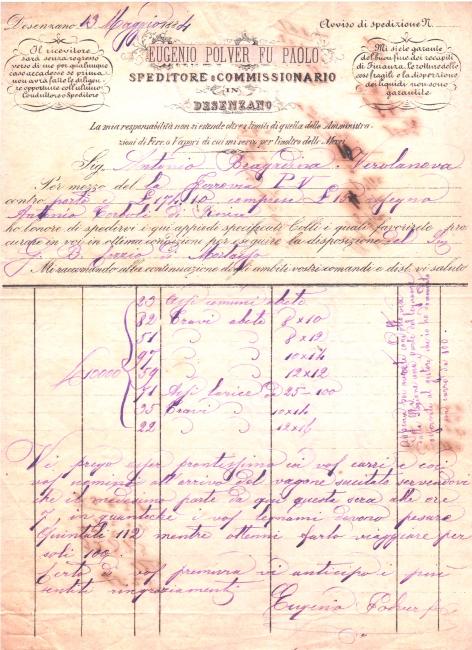 Desenzano 13 Maggio
Avviso di spedizione N.
Il ricevitore
sarà senza regresso
verso di me per qualunque
caso accadesse se prima
non avrà fatte le diligen
ze opportune coll'ultimo
Conduttore o Speditore
EUGENIO POLVER FU PAOLO
SPEDITORE & COMMISSIONARIO
IN
DESENZANO
Mi siete garante
del buon fine dei recapiti
di Finanza. Le rotture delle
cose fragili e la dispersione
dei liquidi non sono
garantite.
La mia responsabilità non si estende oltre i limiti di quella delle Amministra-
zioni di Ferro. o Vapori di cui mi servo per l'inoltro delle Merci
Sig. Antonio Verolanova
Per mezzo del la Ferrovia P V
contro porto e £ 174.10 compreso £ assegno
Antonio
ho l'onore di spedirvi i qui appiedi specificati Colli i quali favorirete pro
curare in voi in ottima condizione per eseguire la disposizione del Sig
G. B.
Mi raccomando alla continuazione degli ambiti vostri comandi e dist. vi saluto
23 Assi comuni abete
82 Travi abete 8 x 10
51 " " 8 x 12
97 " " 10 x 14
59 " " 12 x 12
51 Assi larice da 25-100
35 Travi " 10x14
22 " " 12x16
K 10000
Vi prego esser prontissimo coi vos. carri e coi
vos. uomini all'arrivo del vagone succitato servendovi
che il medesimo parte da qui questa sera alle ore
7, in quantochè i vos. legnami devono pesare
Quintali 112 mentre ottenni farlo viaggiare per
soli 100.
Certo di vos. premura vi anticipo i più
sentiti ringraziamenti
Eugenio Polver